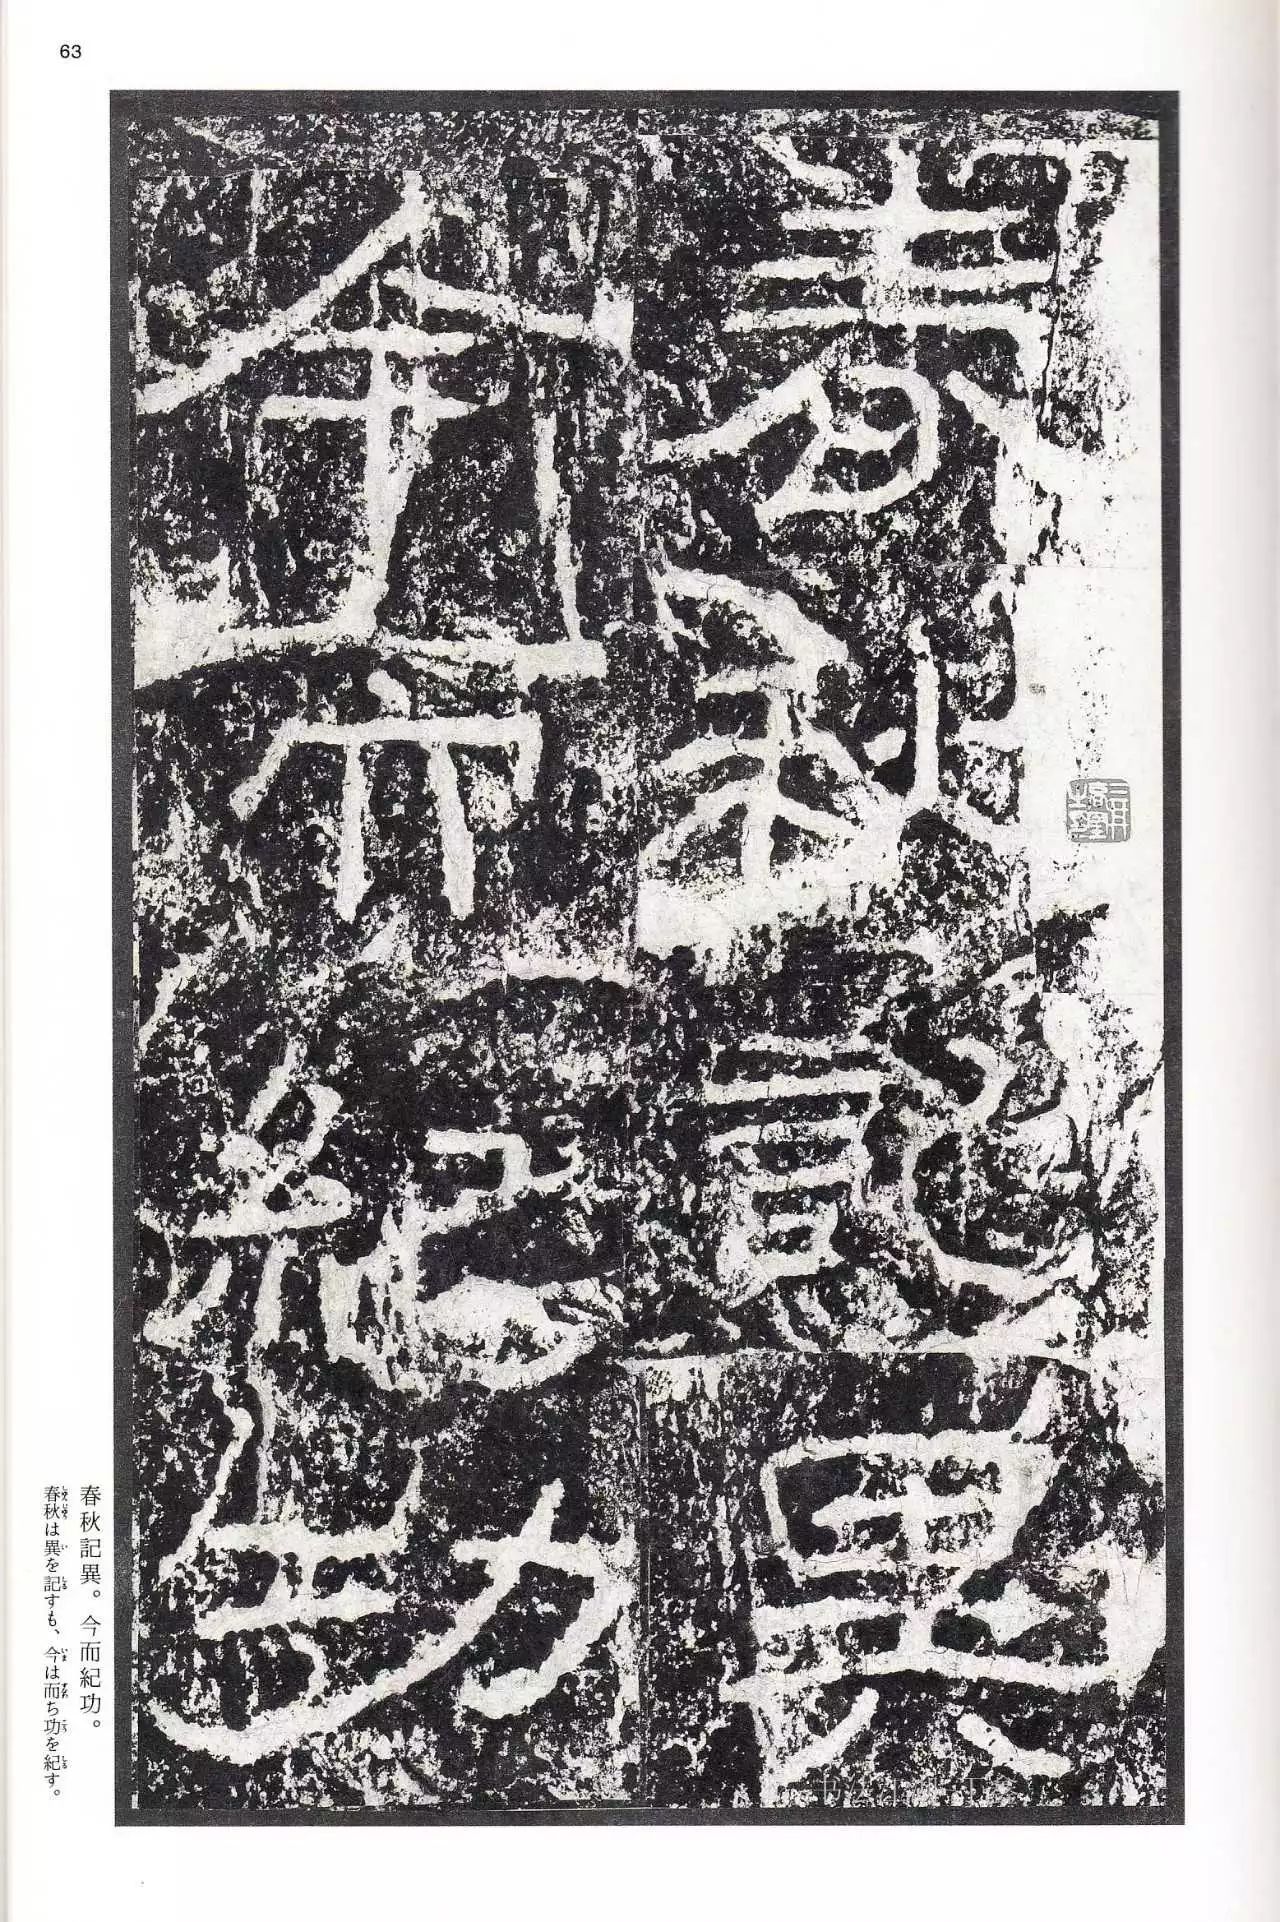 63
春秋記異
今而紀功
春秋記異。今而紀功。
春秋は異を記すも、今は而ち功を紀す。